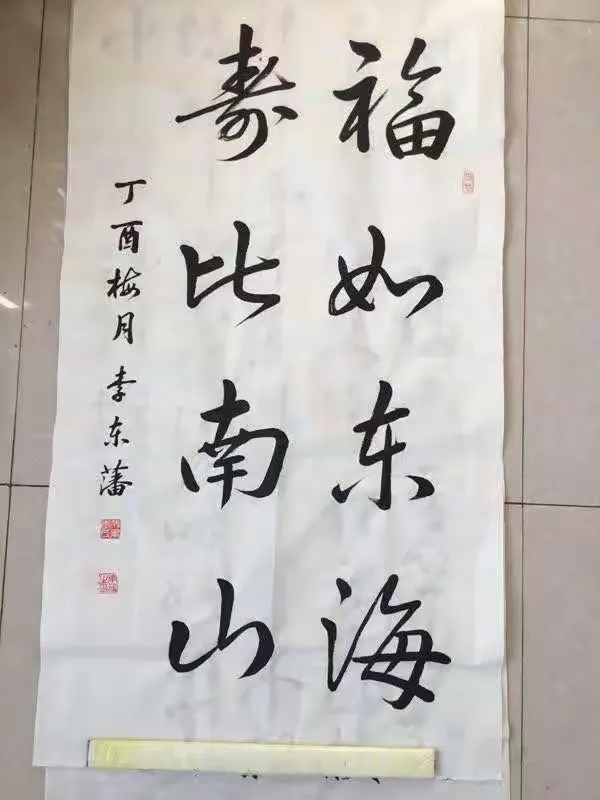 福如东海
寿比南山
丁酉梅月李东藩